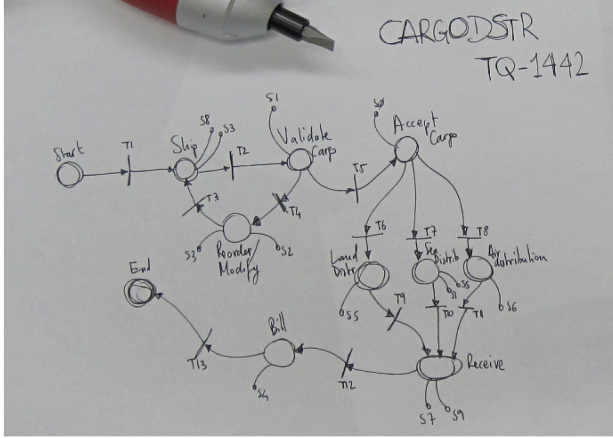 CARGODSTR
TQ-1442
Start
T1
Ship
S8
S3
T2
S1
Validate
Cargo
T3
T4
Reorder
Modify
S3
S2
T5
S0
Accept
Cargo
T6
T7
T8
Land
Distr
S5
Distrib
S1
Air
distribution
S6
T9
T10
T11
Receive
S7
S9
T12
Bill
S4
T13
End